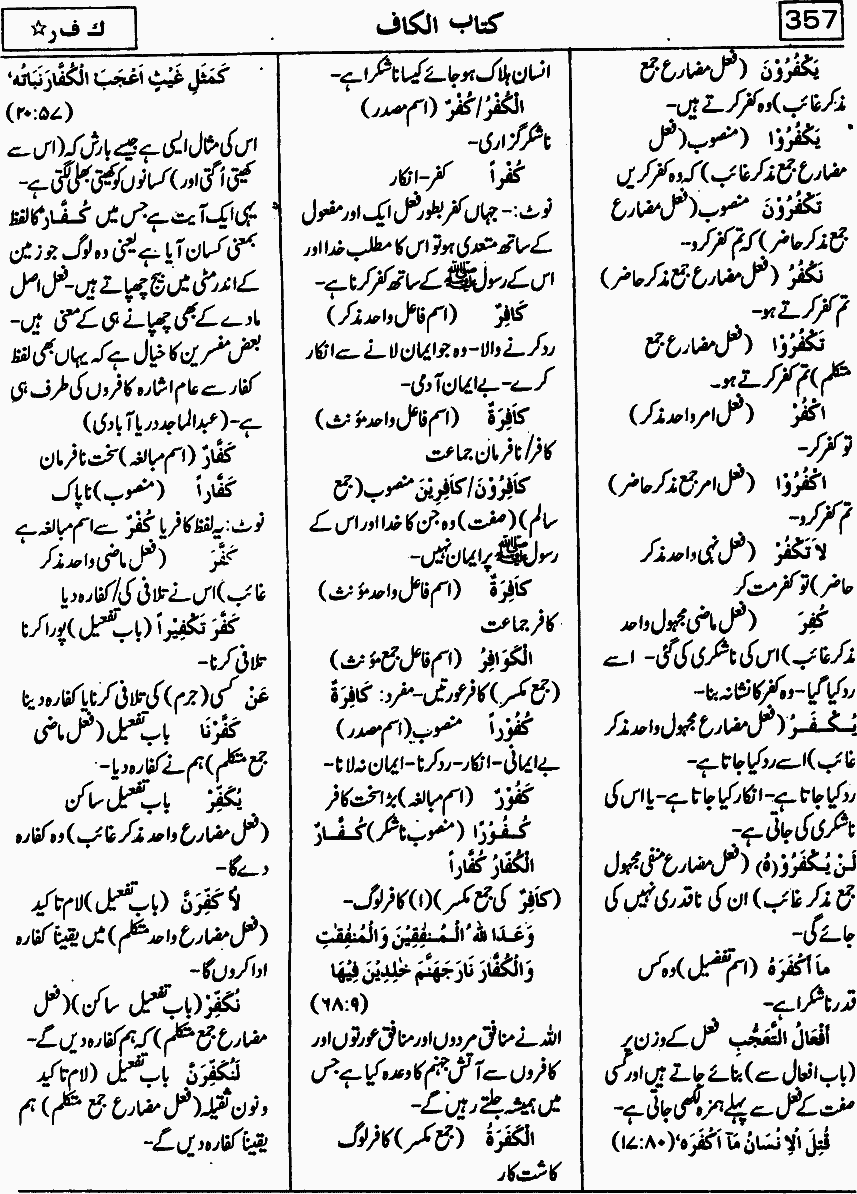 357
کتاب الکاف
ك ف ر☆
یَکْفُرُوْنَ (فعل مضارع جمع
مذکر غائب) وہ کفر کرتے ہیں۔
یَکْفُرُوْا (منصوب (فعل
مضارع جمع مذکر غائب) کہ وہ کفر کریں
تَکْفُرُوْنَ منصوب (فعل مضارع
جمع مذکر حاضر) کہ تم کفر کرو۔
تَکْفُرُ (فعل مضارع جمع مذکر حاضر)
تم کفر کرتے ہو۔
تَکْفُرُوْا (فعل مضارع جمع
متکلم) تم کفر کرتے ہو۔
اکْفُرْ (فعل امر واحد مذکر)
تو کفر کر۔
اکْفُرُوْا (فعل امر جمع مذکر حاضر)
تم کفر کرو۔
لاَ تَکْفُرْ (فعل نہی واحد مذکر
حاضر) تو کفر مت کر
کُفِرَ (فعل ماضی مجہول واحد
مذکر غائب) اس کی ناشکری کی گئی۔ اسے
رد کیا گیا۔ وہ کفر کا نشانہ بنا۔
یُکْفَرُ (فعل مضارع مجہول واحد مذکر
غائب) اسے رد کیا جاتا ہے۔
رد کیا جاتا ہے۔ انکار کیا جاتا ہے۔ یا اس کی
ناشکری کی جاتی ہے۔
لَنْ یُکْفَرُوْ(ہُ) (فعل مضارع منفی مجہول
جمع مذکر غائب) ان کی ناقدری نہیں کی
جائے گی۔
ماَ اَکْفَرَہُ (اسم تفضیل) وہ کس
قدر ناشکرا ہے۔
اَفْعَالُ التَّعَجُّبِ فعل کے وزن پر
(باب افعال سے) بنائے جاتے ہیں اور کسی
صفت کے فعل سے پہلے ہمزہ لکھی جاتی ہے۔
قُتِلَ الْاِ نْسَانُ مَآ اَکْفَرَہ، (۸۰:۱۷)
انسان ہلاک ہو جائے کیسا ناشکرا ہے۔
الْکُفْرُ/کُفْرٌ (اسم مصدر)
ناشکر گزاری۔
کُفْراً کفر۔ انکار
نوٹ:۔ جہاں کفر بطور فعل ایک اور مفعول
کے ساتھ متعدی ہو تو اس کا مطلب خدا اور
اس کے رسول ﷺ کے ساتھ کفر کرنا ہے۔
کَافِرٌ (اسم فاعل واحد مذکر)
رد کرنے والا۔ وہ جو ایمان لانے سے انکار
کرے۔ بے ایمان آدمی۔
کَافِرَةٌ (اسم فاعل واحد مؤنث)
کافر/نافرمان جماعت
کاَفِرُوْنَ/کاَفِرِیْنَ منصوب (جمع
سالم) (صفت) وہ جن کا خدا اور اس کے
رسول ﷺ پر ایمان نہیں۔
کاَفِرَةٌ (اسم فاعل واحد مؤنث)
کافر جماعت
الْکَوَافِرُ (اسم فاعل جمع مؤنث)
(جمع مکسر) کافر عورتیں۔ مفرد: کَافِرَةٌ
کُفُوْراً منصوب (اسم مصدر)
بے ایمانی۔ انکار۔ رد کرنا۔ ایمان نہ لانا۔
کَفُوْرٌ (اسم مبالغہ) بڑا سخت کافر
کُفُوْرًا (منصوب ناشکر) کُفَّارٌ
الْکُفَّارُ کُفَّاراً
(کاَفِرٌ کی جمع مکسر) (ا) کافر لوگ۔
وَعَدَا للہُ الْمُنٰفِقِیْنَ وَالْمُنٰفِقٰتِ
وَالْکُفَّارَ نَارَ جَھَنَّمَ خٰلِدِیْنَ فِیْھَا
(۶۸:۹)
اللہ نے منافق مردوں اور منافق عورتوں اور
کافروں سے آتش جہنم کا وعدہ کیا ہے جس
میں ہمیشہ جلتے رہیں گے۔
الْکَفَرَةُ (جمع مکسر) کافر لوگ
کاشت کار
کَمَثَلِ غَیْثٍ اَعْجَبَ الْکُفَّارَ نَبَاتُہ،
(۲۰:۵۷)
اس کی مثال ایسی ہے جیسے بارش کہ (اس سے
کھیتی اُگتی اور) کسانوں کو کھیتی بھلی لگتی ہے۔
یہی ایک آیت ہے جس میں کُفَّار کا لفظ
بمعنی کسان آیا ہے یعنی وہ لوگ جو زمین
کے اندر مٹی میں بیج چھپاتے ہیں۔ فعل اصل
مادے کے بھی چھپانے ہی کے معنی ہیں۔
بعض مفسرین کا خیال ہے کہ یہاں بھی لفظ
کفار سے عام اشارہ کافروں کی طرف ہی
ہے۔ (عبدالماجد دریا آبادی)
کَفَّارٌ (اسم مبالغہ) سخت نافرمان
کَفَّاراً (منصوب) ناپاک
نوٹ: یہ لفظ کافر یا کُفْرٌ سے اسم مبالغہ ہے
کَفَّرَ (فعل ماضی واحد مذکر
غائب) اس نے تلافی کی/کفارہ دیا
کَفَّرَ تَکْفِیْراً (باب تفعیل) پورا کرنا
تلافی کرنا۔
عَنْ کسی (جرم) کی تلافی کرنا یا کفارہ دینا
کَفَّرْنَا باب تفعیل (فعل ماضی
جمع متکلم) ہم نے کفارہ دیا۔
یُکَفِّرْ باب تفعیل ساکن
(فعل مضارع واحد مذکر غائب) وہ کفارہ
دے گا۔
لأُ کَفِّرَنَّ (باب تفعیل) لام تاکید
(فعل مضارع واحد متکلم) میں یقیناً کفارہ
ادا کروں گا۔
نُکَفِّرْ (باب تفعیل ساکن) (فعل
مضارع جمع متکلم) کہ ہم کفارہ دیں گے۔
لَنُکَفِّرَنَّ باب تفعیل (لام تاکید
و نون ثقیلہ (فعل مضارع جمع متکلم) ہم
یقیناً کفارہ دیں گے۔